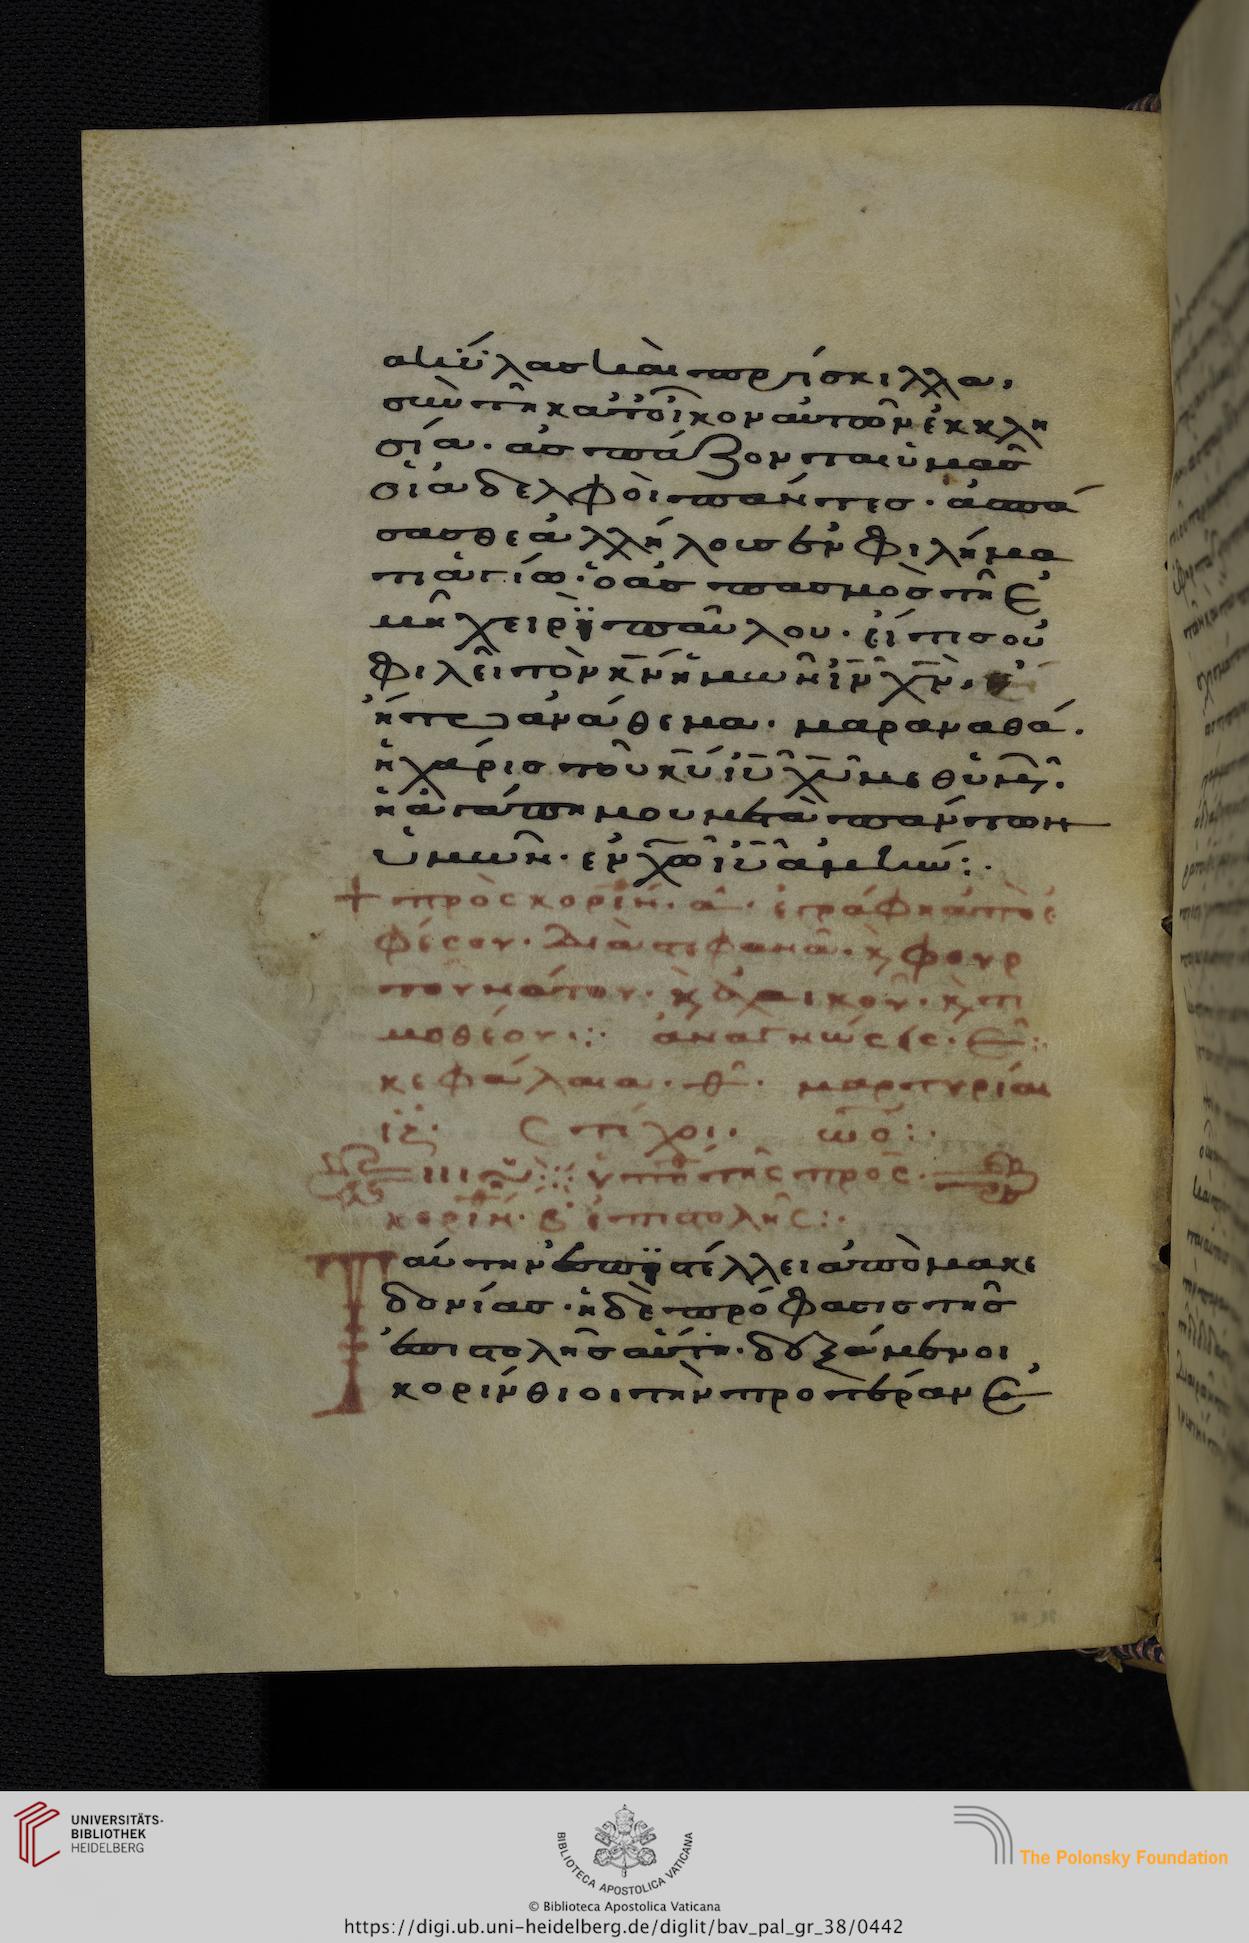 ακύλας καὶ πρίσκιλλα,
σὺν τῇ κατ' οἶκον αὐτῶν ἐκκλη
σία. ἀσπάζονται ὑμᾶσ
οἱ ἀδελφοὶ πάντεσ. ἀσπά
σασθε ἀλλήλουσ ἐν φιλήμα
τι ἁγίω. ὁ ἀσπασμὸσ τῇ ἐ
μῇ χειρὶ παύλου. εἴ τισ οὐ
φιλεῖ τὸν κν ἡμῶν ιν χν,
ἤτω ἀνάθεμα. μαραναθά.
ἡ χάρισ τοῦ κυ ιυ χυ μεθ' ὑμῶν.
ἡ ἀγάπη μου μετὰ πάντων
ὑμῶν. ἐν χω ιυ ἀμήν:.
+ πρὸς κοριν. α. ἐγράφη ἀπὸ ἐ
φέσου. διὰ στεφανᾶ. κ φουρ
τουνάτου. κ ἀχαικοῦ. κ τι
μοθέου:· ἀναγνώσεις. ε:
κεφάλαια. θ. μαρτυρίαι
ιζ. Στίχοι. ωο:.
ὑπ τῆς πρὸς.
κοριν. β ἐπιστολῆς:.
Ταύτην ἐπιστέλλει ἀπὸ μακε
δονίασ. ἡ δὲ πρόφασισ τῆσ
ἐπιστολῆσ αὕτη. δεξάμενοι
κορίνθιοι τὴν προτέραν ἐ
UNIVERSITÄTS-
BIBLIOTHEK
HEIDELBERG
BIBLIOTECA APOSTOLICA VATICANA
The Polonsky Foundation
© Biblioteca Apostolica Vaticana
https://digi.ub.uni-heidelberg.de/diglit/bav_pal_gr_38/0442